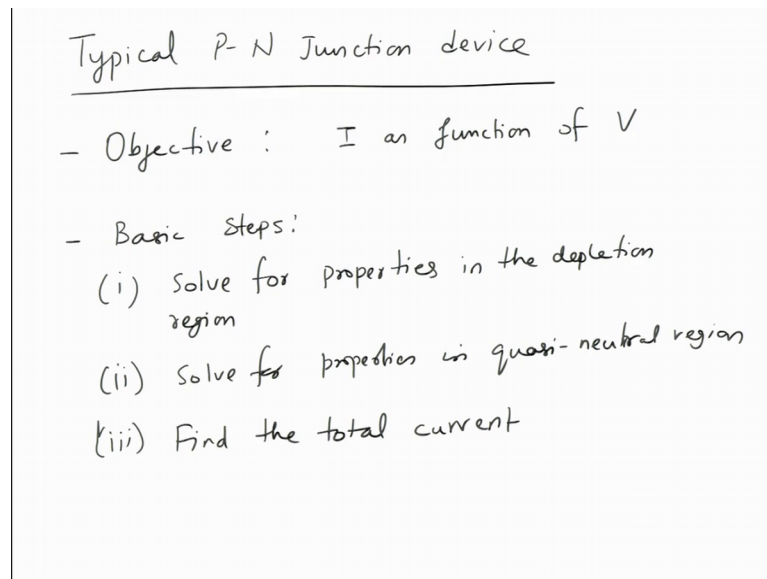 Typical P-N Junction device
- Objective : I as function of V
- Basic Steps:
(i) Solve for properties in the depletion
region
(ii) Solve for properties in quasi-neutral region
(iii) Find the total current